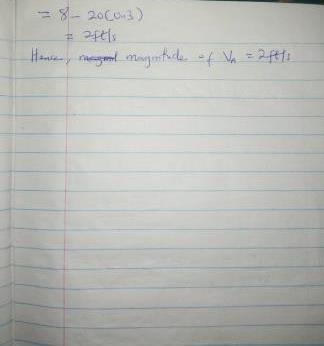 = 8 - 20(0.3)
= 2ft/s
Hence, magnitude of VA = 2ft/s